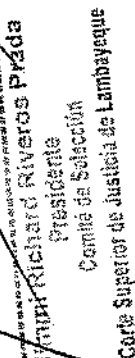 Richard Riveros Prada
Presidente
Comité de Selección
Corte Superior de Justicia de Lambayeque